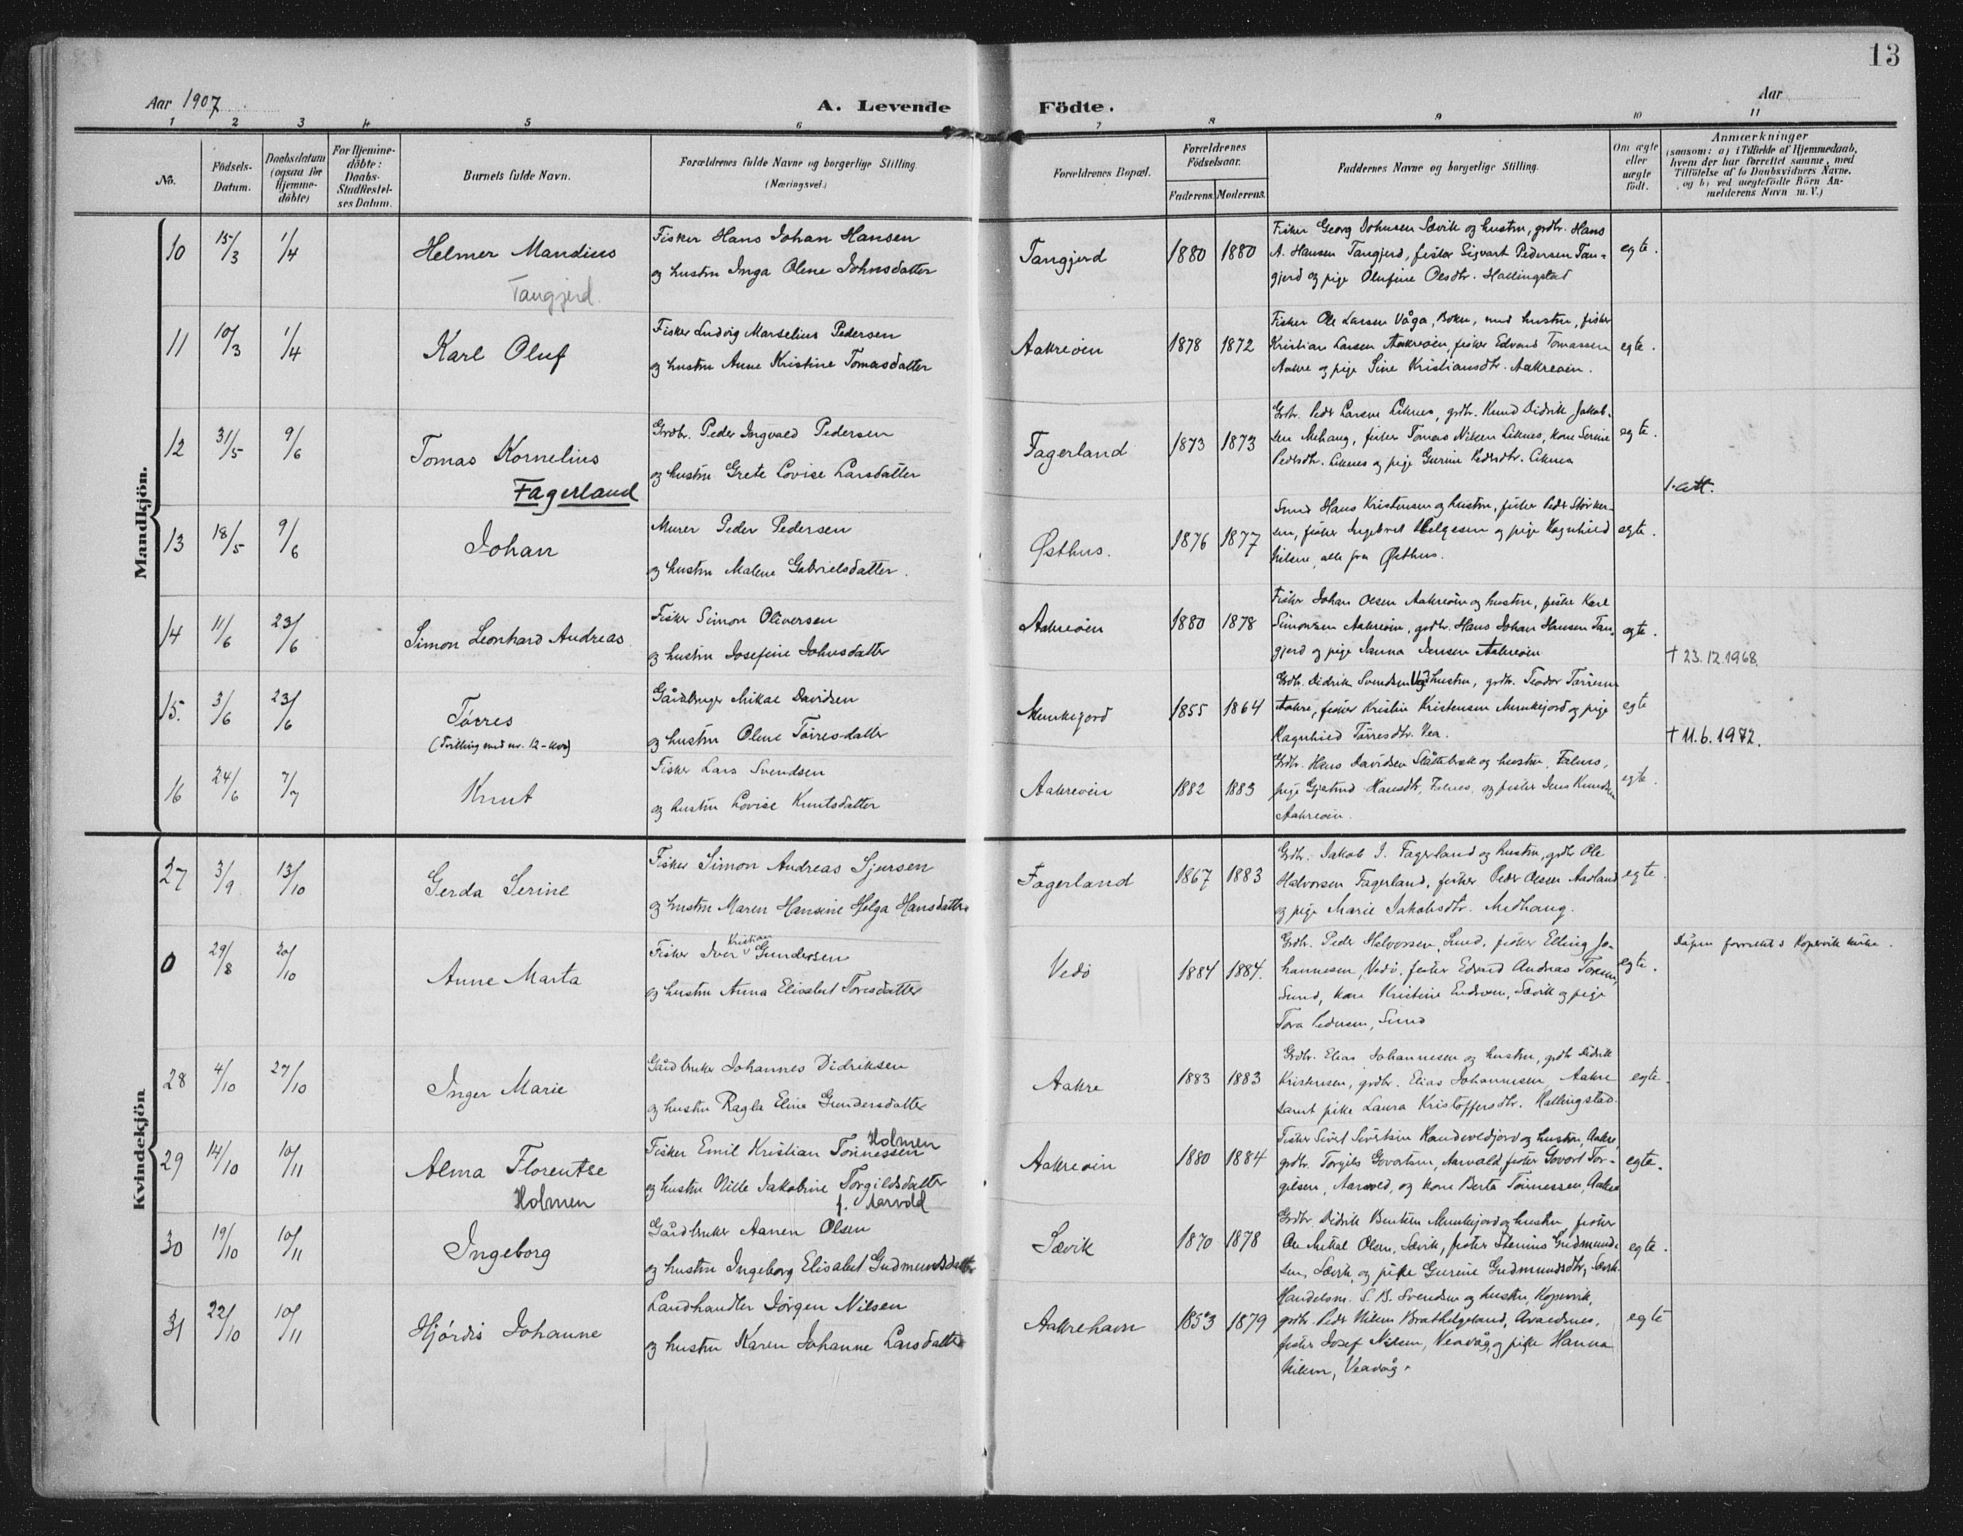 13
Aar 1907
A. Levende Födte.
Aar
1 2 3 4 5 6 7 8 9 10 11
No.
Födsels-
Datum.
Daabsdatum
(ogsaa for
Hjemme-
döbte)
For Hjemme-
döbte:
Daabs-
Stadfestel-
ses Datum.
Barnets fulde Navn.
Forældrenes fulde Navne og borgerlige Stilling.
(Næringsvei.)
Forældrenes Bopæl.
Forældrenes
Födselsaar.
Faderens. Moderens.
Faddernes Navne og borgerlig Stilling.
Om ægte
eller
uægte
födt.
Anmærkninger
(saasom: a) i Tilfælde af Hjemmedaab,
hvem der har forrettet samme, med
Tilföielse af to Daabsvidners Navne.
og b) ved uægtefödte Börn An-
melderens Navn m. V.)
Mandkjön.
10 15/3 1/4 Helmer Mandius
Tangjerd.
Fisker Hans Johan Hansen
og hustru Inga Oline Johnsdatter
Tangjerd 1880 1880
Fisker Georg Johnsen Sævik og hustru, grdbr. Hans
A. Hansen Tangjerd, fisker Sigvart Pedersen Tan-
gjerd og pige Olufine Olsdtr. Hallingstad
egte.
11 10/3 1/4 Karl Oluf
Fisker Ludvig Marselius Pedersen
og hustru Anne Kristine Tomasdatter
Aakreøen 1878 1872
Fisker Ole Larsen Våga, Bokn, med hustru, fisker
Kristian Larsen Aakreøen, fisker Edvard Tomassen
Aakre og pige Sine Kristiansdtr. Aakreøen.
egte.
12 31/5 9/6 Tomas Kornelius
Fagerland
Grdbr. Peder Ingvald Pedersen
og hustru Grete Lovise Larsdatter
Fagerland 1873 1873
Grbr. Peder Larsen Liknes, grdbr. Knud Didrik Jakob-
sen Medhaug, fisker Tomas Nilsen Liknes, kone Serine
Pedersdtr. Liknes og pige Gurine Pedersdtr. Liknes
egte.
1. att.
13 18/5 9/6 Johan
Murer Peder Pedersen
og hustru Malene Gabrielsdatter.
Østhus. 1876 1877
Smed Hans Kristensen og hustru, fisker Peder Størker-
sen, fisker Ingebret Helgesen og pige Ragnhild
Nilsen, alle fra Østhus.
egte.
14 11/6 23/6 Simon Leonhard Andreas
Fisker Simon Oliversen
og hustru Josefine Johnsdatter
Aakreøen 1880 1878
Fisker Johan Olsen Aakreøen og hustru, fisker Karl
Simonsen Aakreøen, grdbr. Hans Johan Hansen Tan-
gjerd og pige Janna Jensen Aakreøen
egte.
† 23.12.1968.
15. 3/6 23/6 Tørres
(Tvilling med nr. 12 - kv)
Gårdbruger Mikal Davidsen
og hustru Oline Tørresdatter
Munkejord 1855 1864
Grdbr. Didrik Svendsen og hustru, grdbr. Teodor Tørresen
Aakre, fisker Kristen Kristensen Munkejord og pige
Ragnhild Tørresdtr. Vea.
egte
† 11.6.1972.
16 24/6 7/7 Knut
Fisker Lars Svendsen
og hustru Lovise Knutsdatter
Aakreøen 1882 1883
Grdbr. Hans Davidsen Slåttebrek og hustru, Falnes,
pige Gjertrud Hansdtr, Falnes, og fisker Jens Knudsen
Aakreøen.
egte.
Kvindekjön
27 3/9 13/10 Gerda Serine
Fisker Simon Andreas Sjursen
og hustru Maren Hansine Helga Hansdatter
Fagerland 1867 1883
Grdbr. Jakob J. Fagerland og hustru, grdbr Ole
Halvorsen Fagerland, fisker Peder Olsen Aadland
og pige Marie Jakobsdtr. Medhaug.
egte.
0 29/8 20/10 Anne Marta
Fisker Iver Kristian Gundersen
og hustru Anna Elisabet Toresdatter
Vedø 1884 1884.
Grdbr. Peder Halvorsen, Sund, fisker Elling Jo-
hannesen, Vedø, fisker Edvard Andreas Toresen,
Sund, kone Kristine Endresen, Sævik og pige
Tora Pedersen, Sund
egte.
Dåpen forrettet i Kopervik kirke.
28 4/10 27/10 Inger Marie
Gårdbruker Johannes Didriksen
og hustru Ragla Eline Gundersdatter
Aakre 1883 1883
Grdbr. Elias Johannesen og hustru, grdbr Didrik
Kristensen, grdbr. Elias Johannesen, Aakre
samt pike Laura Kristoffersdtr. Hallingstad.
egte.
29 14/10 10/11 Alma Florentse
Holmen
Fisker Emil Kristian Tønnessen Holmen
og hustru Nille Jakobine Torgildsdatter
f. Aarvold
Aakreøen 1880 1884
Fisker Sivert Sivertsen Kondevedjord og hustru, Aakre,
grdbr. Torgils Govertsen, Aarvald, fisker Govert Tor-
gilsen, Aarvold, og kone Berta Tønnessen, Aakre
egte.
30 19/10 10/11 Ingeborg
Gårdbruker Aanen Olsen
og hustru Ingeborg Elisabet Gudmundsdatter
Sævik 1870 1878
Grdbr. Didrik Bentsen Munkejord og hustru, fisker
Ole Mikal Olsen, Sævik, fisker Stenius Gudmund-
sen, Sævik, og pike Gurine Gudmundsdtr, Sævik.
egte.
31 22/10 10/11 Hjørdis Johanne
Landhandler Jørgen Nilsen
og hustru Karen Johanne Larsdatter
Aakrehavn 1853 1879
Handelsm. S. B. Svendsen og hustru, Kopervik,
grdbr. Peder Nilsen Bratthelgeland, Avaldsnes,
fisker Josef Nilsen, Veavåg, og pike Hanna
Nilsen, Veavåg.
egte